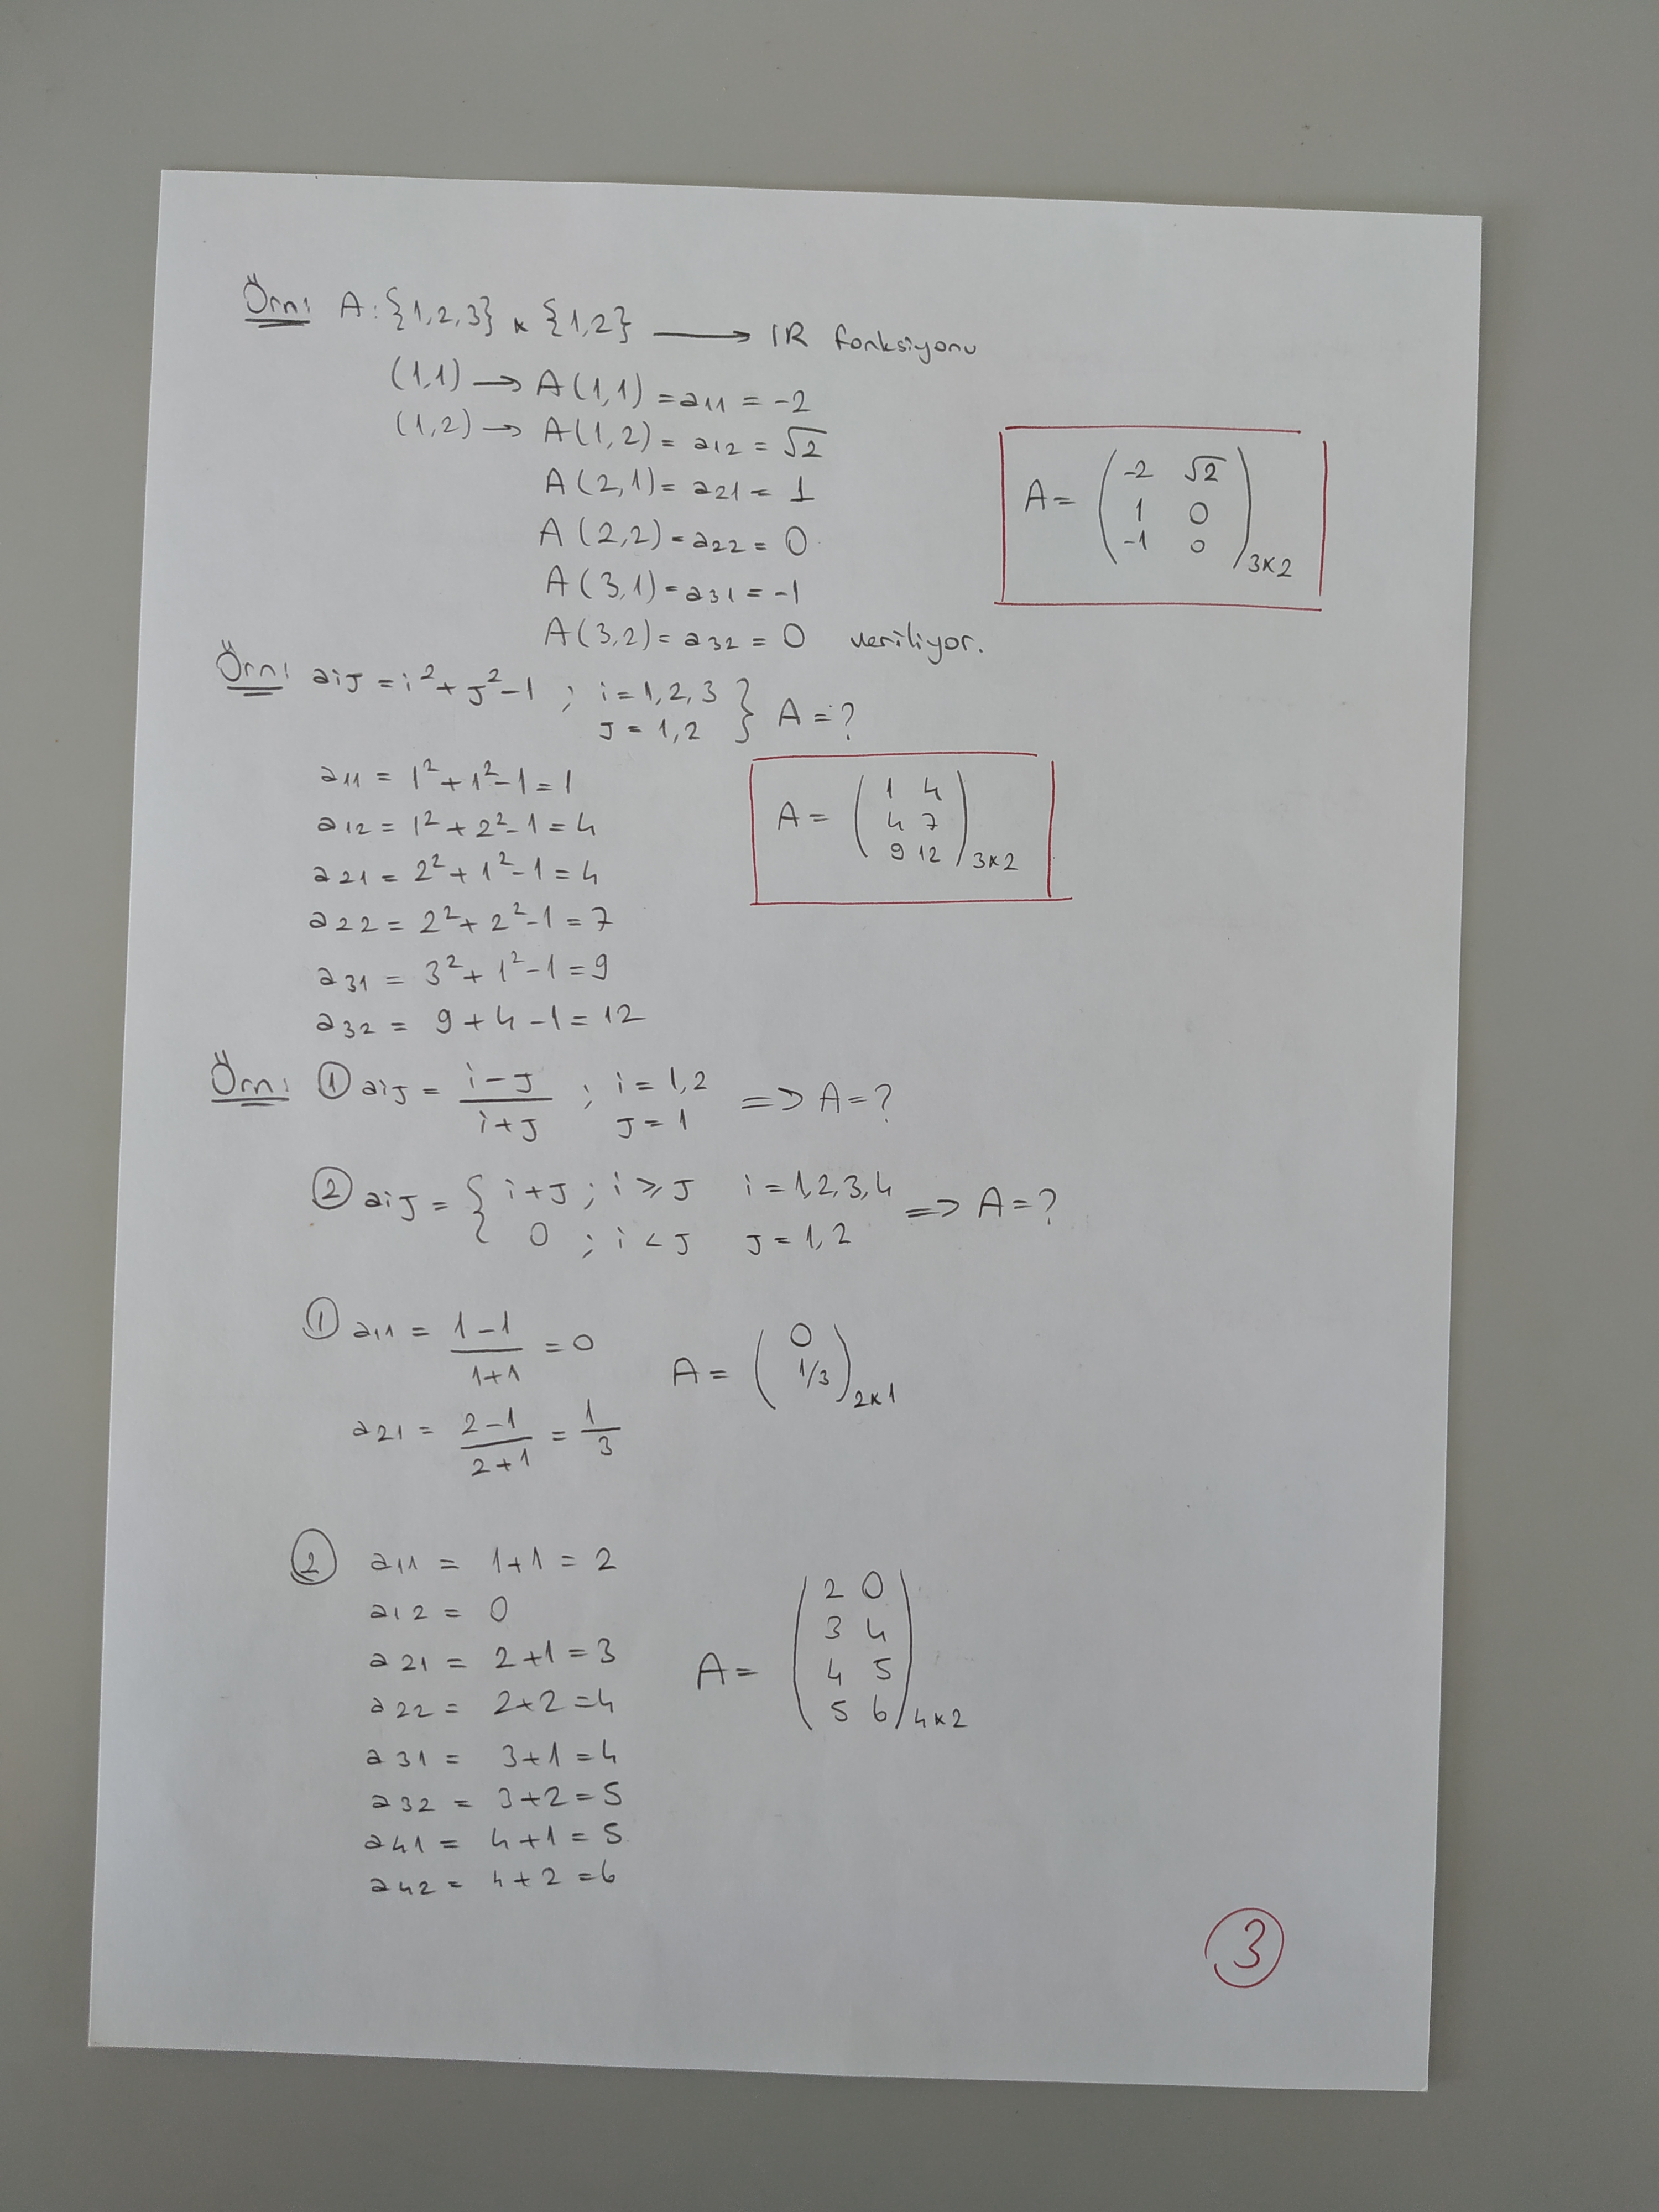 Örn: A: {1,2,3} x {1,2} ⟶ IR fonksiyonu
(1,1) → A(1,1) = a11 = -2
(1,2) → A(1,2) = a12 = √2
A(2,1) = a21 = 1
A(2,2) = a22 = 0
A(3,1) = a31 = -1
A(3,2) = a32 = 0 veriliyor.
A = ( -2 √2
1 0
-1 0 )3x2
Örn: aiJ = i² + J² - 1 ; i = 1,2,3
J = 1,2 } A = ?
a11 = 1² + 1² - 1 = 1
a12 = 1² + 2² - 1 = 4
a21 = 2² + 1² - 1 = 4
a22 = 2² + 2² - 1 = 7
a31 = 3² + 1² - 1 = 9
a32 = 9 + 4 - 1 = 12
A = ( 1 4
4 7
9 12 )3x2
Örn: ① aiJ = (i - J)/(i + J) ; i = 1,2
J = 1 => A = ?
② aiJ = { i + J ; i ≥ J i = 1,2,3,4
0 ; i < J J = 1,2 => A = ?
① a11 = (1-1)/(1+1) = 0
a21 = (2-1)/(2+1) = 1/3
A = ( 0
1/3 )2x1
② a11 = 1+1 = 2
a12 = 0
a21 = 2+1 = 3
a22 = 2+2 = 4
a31 = 3+1 = 4
a32 = 3+2 = 5
a41 = 4+1 = 5
a42 = 4+2 = 6
A = ( 2 0
3 4
4 5
5 6 )4x2
3